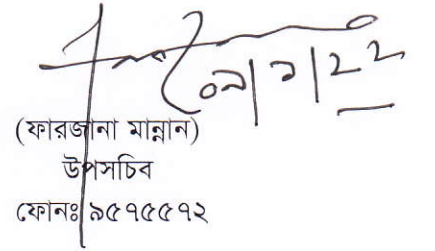 ০৯/১/২২
(ফারজানা মান্নান)
উপসচিব
ফোনঃ ৯৫৭৫৫৭২